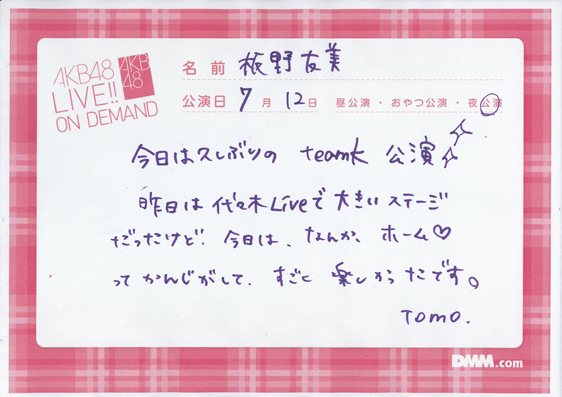 AKB48
LIVE!!
ON DEMAND
AKB
48
名前 板野友美
公演日 7月12日 昼公演・おやつ公演・夜公演
今日は久しぶりの teamK 公演
昨日は代々木Liveで大きいステージ
だったけど、今日は、なんか、ホーム♡
って かんじがして、すごく 楽しかったです。
Tomo.
DMM.com